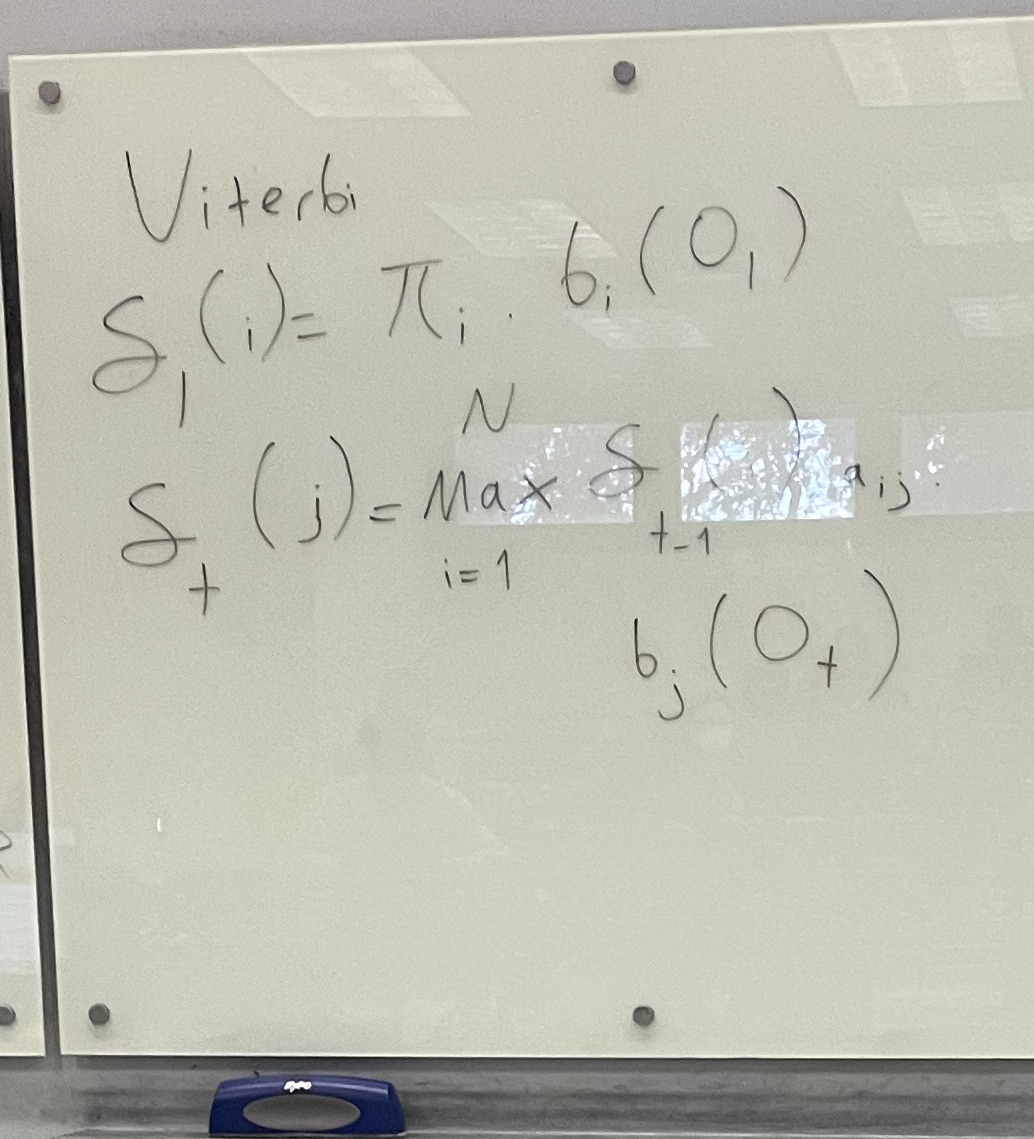 Viterbi
δ₁(i) = πᵢ · bᵢ(O₁)
δₜ(j) = Max_{i=1}^{N} δₜ₋₁(i) aᵢⱼ ·
bⱼ(Oₜ)